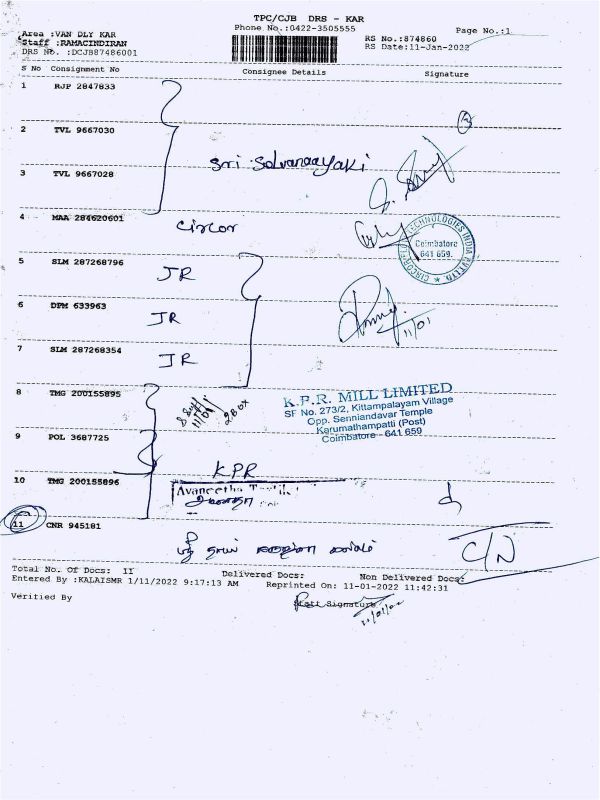 TPC/CJB DRS - KAR
Phone No.:0422-3505555
Page No.:1
Area :VAN DLY KAR
Staff :RAMACINDIRAN
DRS No. :DCJB87486001
RS No.:874860
RS Date:11-Jan-2022
S No Consignment No Consignee Details Signature
1 RJP 2847833
2 TVL 9667030
3 TVL 9667028
Sri Selvanaayaki
4 MAA 284620601 Circor
TECHNOLOGIES INDIA PVT LTD
Coimbatore
641 659.
CIRCOR
5 SLM 287268796 JR
6 DPM 633963 JR
11/01
7 SLM 287268354 JR
8 TMG 200155895
2 Box
K.P.R. MILL LIMITED
SF No. 273/2, Kittampalayam Village
Opp. Senniandavar Temple
Karumathampatti (Post)
Coimbatore - 641 659
9 POL 3687725
KPR
10 TMG 200155896
Avaneetha
11 CNR 945181
ஸ்ரீ தாய்
C/N
Total No. Of Docs: 11 Delivered Docs: Non Delivered Docs:
Entered By :KALAISMR 1/11/2022 9:17:13 AM Reprinted On: 11-01-2022 11:42:31
Verified By Staff Signature